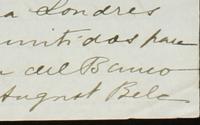 a Londres
mitidos para
a del Banco
August Belo